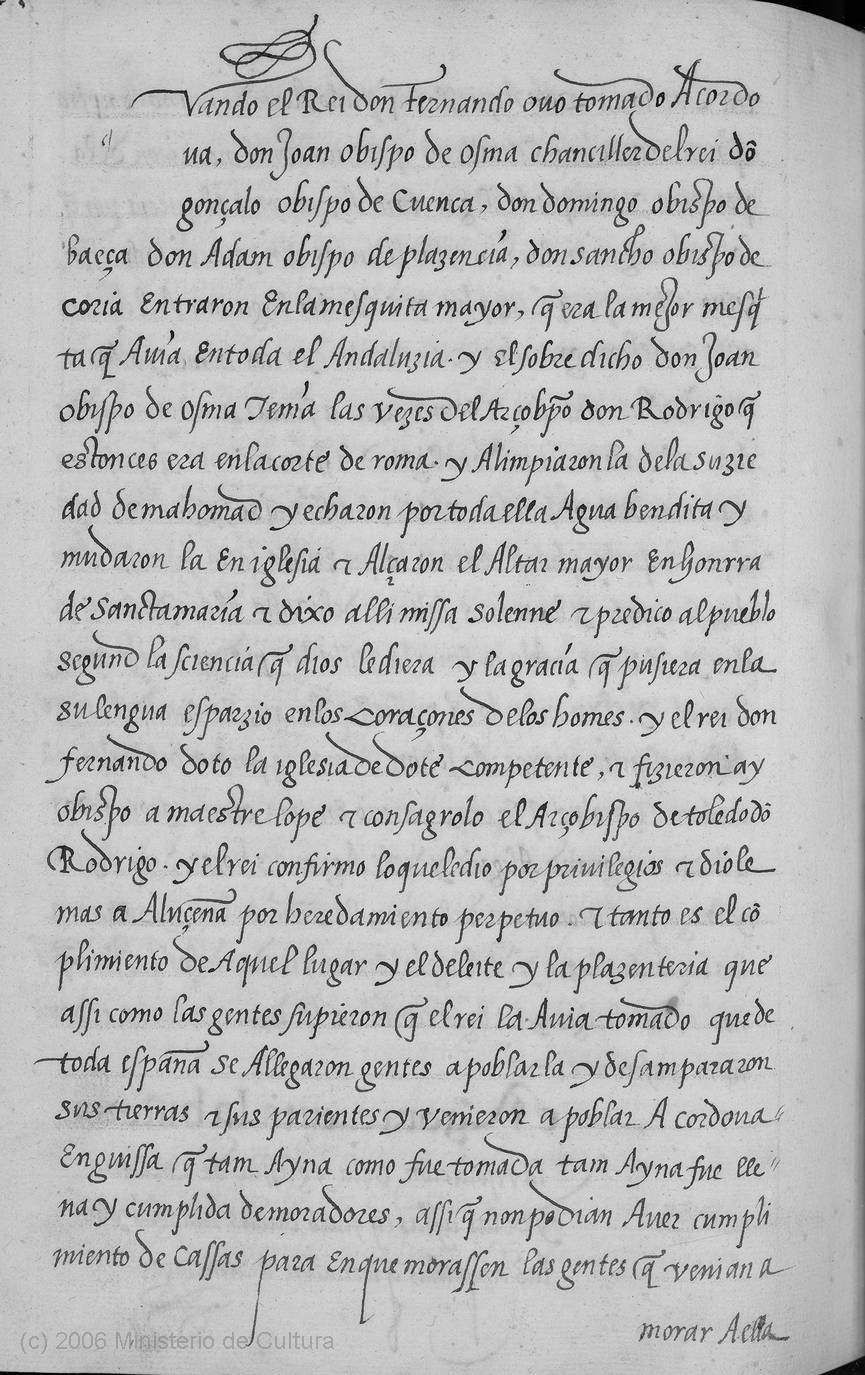 Vando el Rei don fernando ovo tomado Acordo
va, don Joan obispo de osma chanciller del rei dõ
gonçalo obispo de Cuenca, don domingo obispo de
baeça don Adam obispo de plazencia, don sancho obispo de
coria Entraron En la mesquita mayor, q̃ era la mejor mesq̃
ta q̃ Avia En toda el Andaluzia. y el sobre dicho don Joan
obispo de osma Tenia las vezes del Arçobp̃o don Rodrigo q̃
estonces era en la corte de roma. y Alimpiaron la de la suzie
dad de mahomad y echaron por toda ella Agua bendita y
mudaron la En iglesia & Alçaron el Altar mayor En honrra
de Sancta maria & dixo alli missa solenne & predico al pueblo
segund la sciencia q̃ dios le diera y la gracia q̃ pusiera en la
su lengua esparzio en los coraçones de los homes. y el rei don
fernando doto la iglesia de dote competente, & fizieron ay
obispo a maestre lope & consagrolo el Arçobispo de toledo dõ
Rodrigo. y el rei confirmo lo que le dio por privilegios & diole
mas a Aluçena por heredamiento perpetuo. & tanto es el cõ
plimiento de Aquel lugar y el deleite y la plazenteria que
assi como las gentes supieron q̃ el rei la Avia tomado que de
toda españa se Allegaron gentes a poblarla y desampararon
sus tierras & sus parientes y venieron a poblar A cordova
En guissa q̃ tam Ayna como fue tomada tam Ayna fue lle
na y cumplida de moradores, assi q̃ non podian Aver cumpli
miento de Cassas para En que morassen las gentes q̃ venian a
morar A ella
(c) 2006 Ministerio de Cultura